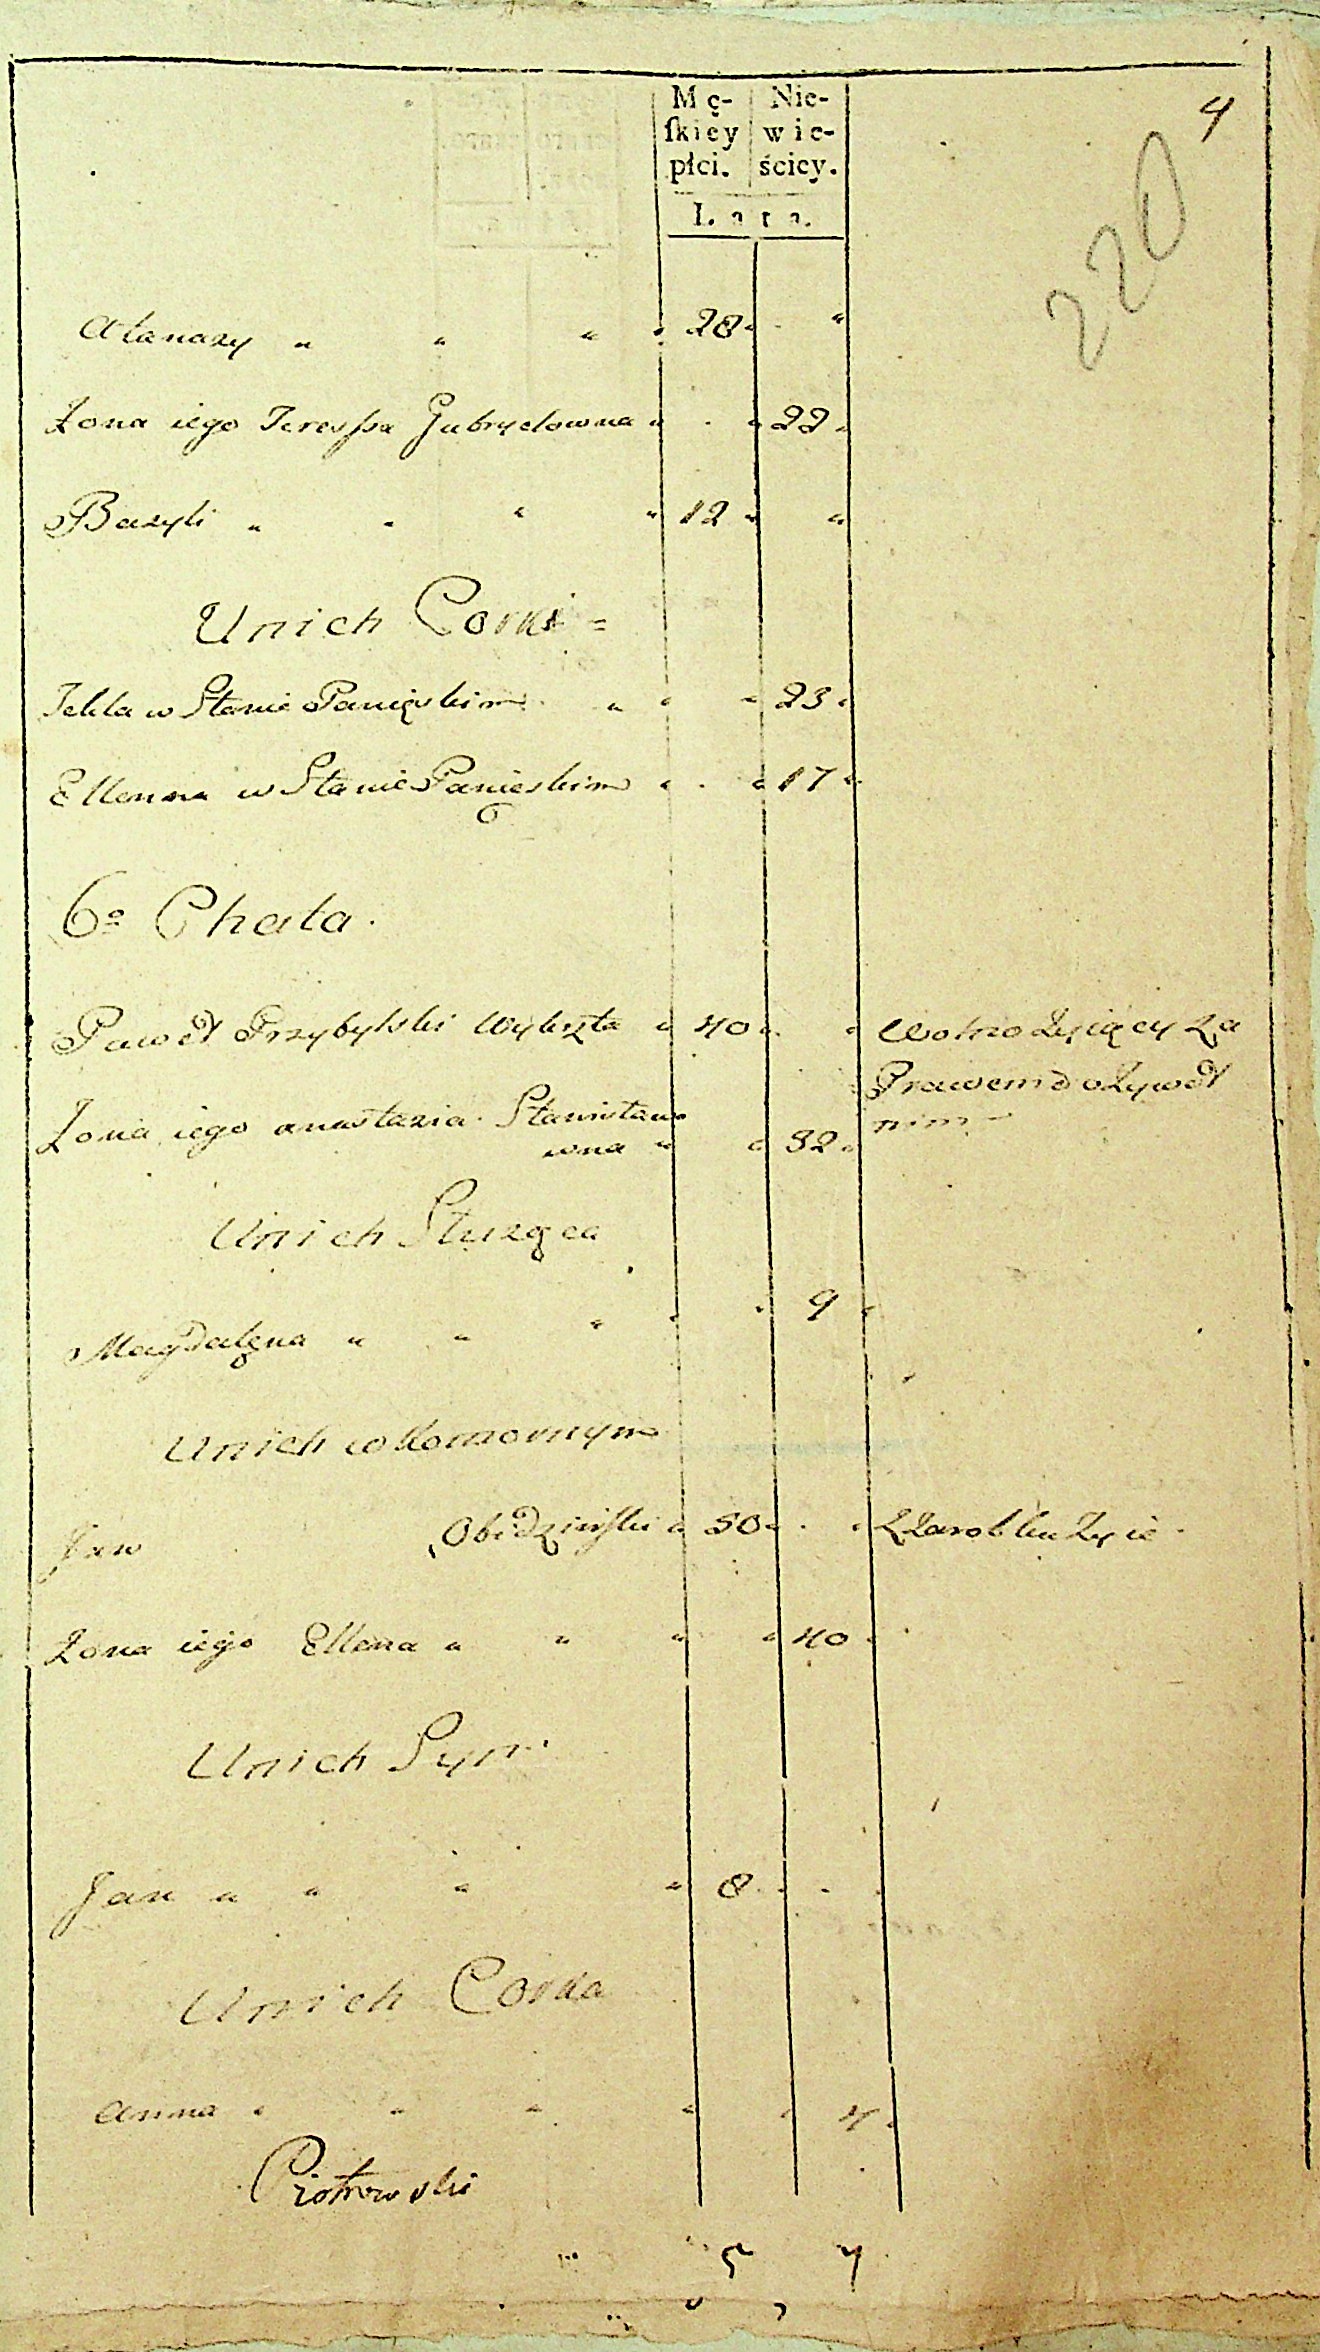 4
220
Mę- Nie-
ſkiey wie-
płci. ściey.
Lata.
Atanazy " " " " 28 " "
Żona iego Teressa Gubryelowna " " 22 "
Bazyli " " " " 12 " "
U nich Corki =
Tekla w Stanie Panięskim " " " 23 "
Ellenna w Stanie Panięskim " " 17 "
6º Chata.
Paweł Przybylski " 40 " " Wolno Żyiący za
Prawem dożywot
nim
Żona iego anastazia Stanisławo
wna " " 32 "
U nich Słuząca
Magdalęna " " " " " 9 "
U nich w Komornym
Jan Obidzinſki " 50 " " Z Zarobku Żyie
Żona iego Ellena " " " " 40 "
U nich Syn
Jan " " " " 8
U nich Corka
anna " " " " " 4 "
Piotrowski
5 7